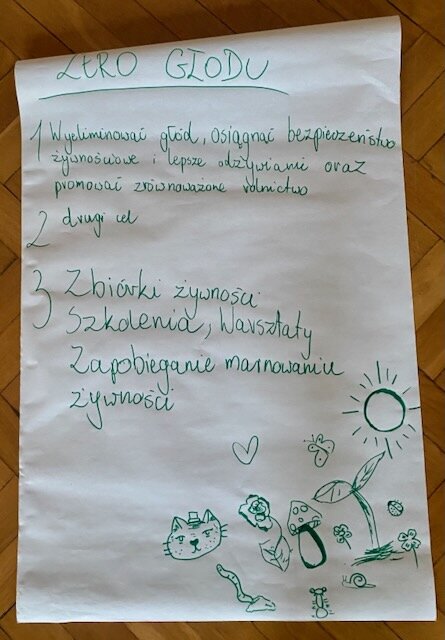 ZERO GŁODU
1 Wyeliminować głód, osiągnąć bezpieczeństwo
żywnościowe i lepsze odżywiani oraz
promować zrównoważone rolnictwo
2 drugi cel
3 Zbiórki żywności
Szkolenia, Warsztaty
Zapobieganie marnowaniu
żywności